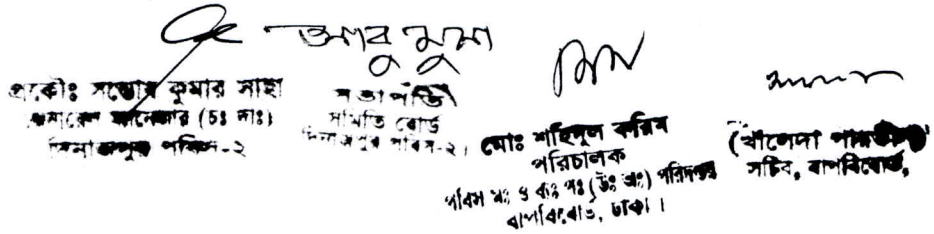 আবু মুসা
প্রকৌঃ সন্তোষ কুমার সাহা
জেনারেল ম্যানেজার (চঃ দাঃ)
দিনাজপুর পবিস-২
সভাপতি
সমিতি বোর্ড
দিনাজপুর পবিস-২।
মোঃ শহিদুল করিম
পরিচালক
পবিস মঃ ও ব্যঃ পঃ (উঃ অঃ) পরিদপ্তর
বাপবিবোর্ড, ঢাকা।
(খালেদা
সচিব, বাপবিবোর্ড,